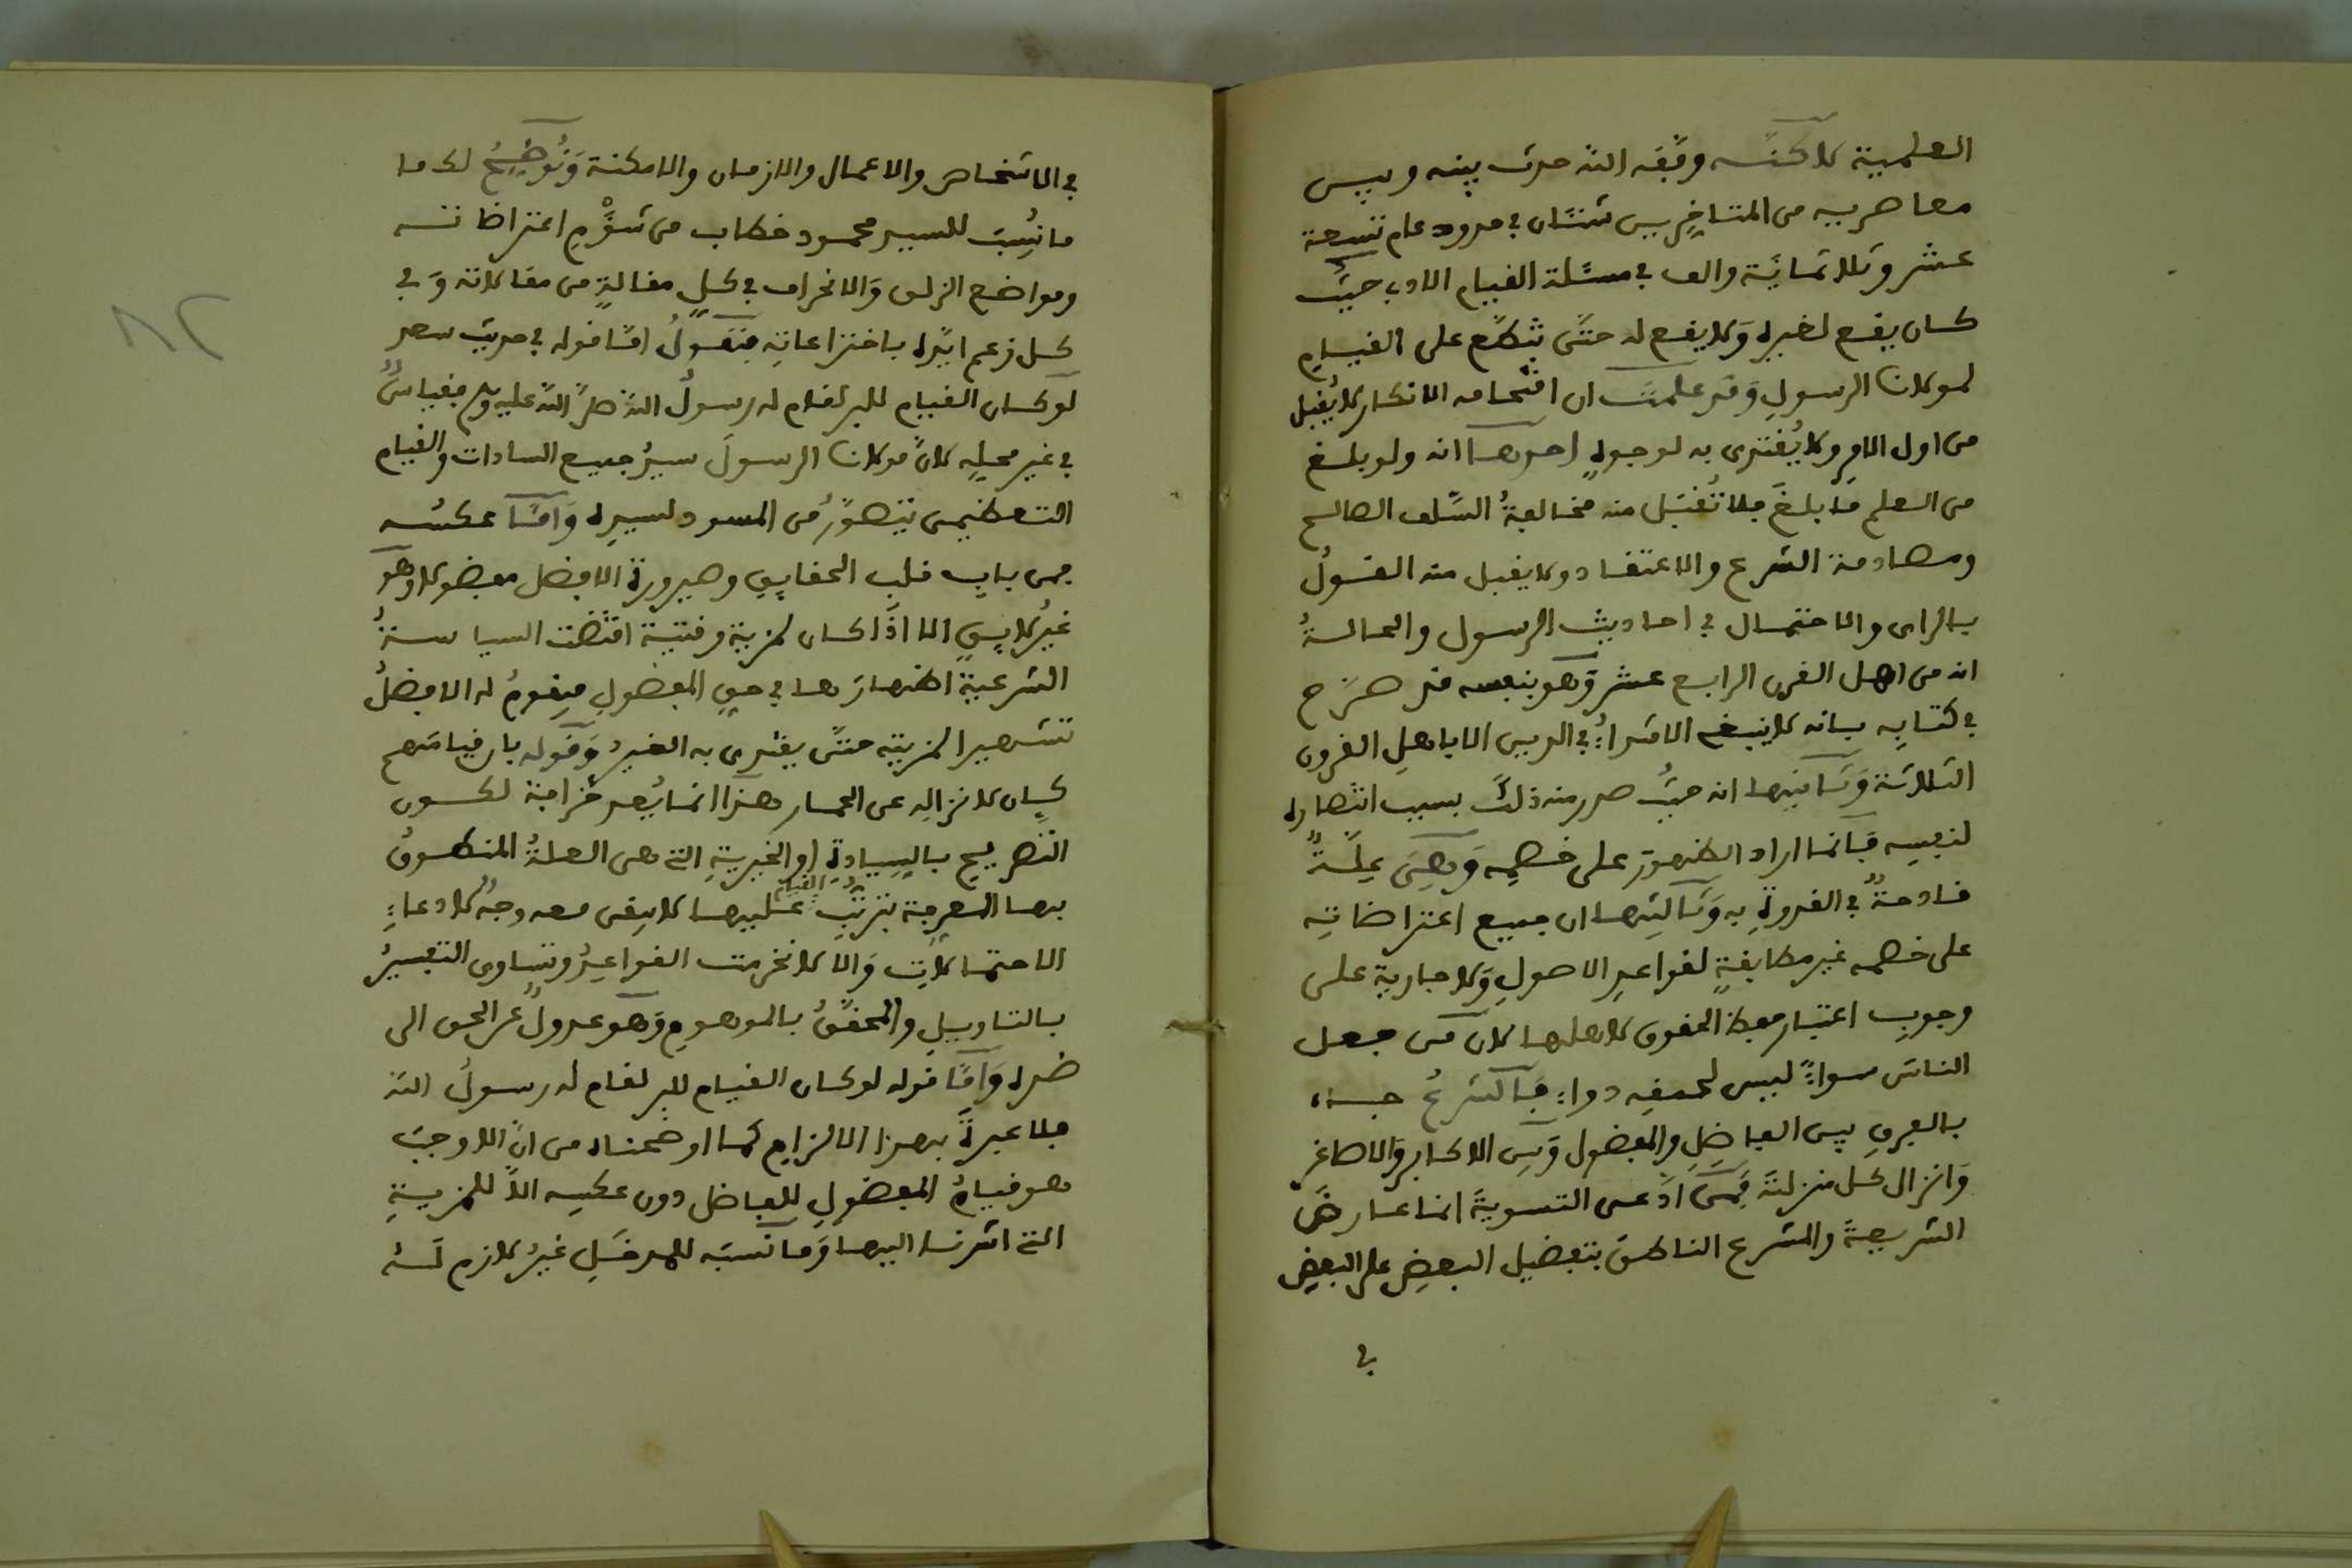 العلمية لاكنه وفقه الله حدث بينه وبين
معاصريه من المتأخرين شنئان في حدود عام تسعة
عشر وثلاثماية والف في مسئلة القيام الادبي حيث
كان يقع لغيره ولا يقع له حتى تكلم على القيام
لمولانا الرسول وقد علمت ان اقتحامه الانكار لا يُقبل
من اول الامر ولا يُقتدى به لوجوه احدها انه ولو بلغ
من العلم ما بلغَ فلا تُقبَل منه مخالفةُ السَّلف الصالح
ومصادمة الشرع والاعتقاد ولا يقبل منه القولُ
بالراى والاحتمال في احاديث الرسول والحالةُ
انه من اهل القرن الرابع عشر وَهو بنفسه قد صرَّح
في كتابه بانه لا ينبغي الاقتداءُ في الدين الا باهل القرون
الثلاثة وَثانيها انه حيثُ صدر منه ذلك بسبب انتصاره
لنفسه فَانما اراد الظهورَ على خصمه وَهِيَ علّةٌ
قادحةٌ في القدوة به وَثالثها ان جميع اعتراضاته
على خصمه غير مطابقةٍ لقواعد الاصول وَلا جارية على
وجوب اعتبار حفظ الحقوق لاهلها لان مَن جعل
الناسَ سواءً ليس لحمقه دواء فَالشرعُ جاء
بالفرق بين الفاضل والمفضول وَبين الاكابر والاصاغر
وَانزال كل منزلتَه فَمن ادَّعى التسويةَ انما عارض
الشريعةَ والشرع الناطق بتفضيل البعض على البعض
في
في الاشخاص والاعمال والازمان والامكنة وَنُوضِحُ لك ما
ما نُسِبَ للسيد محمود خطاب من شُؤْم اعتراضاته
ومواضع الزلق وَالانحراف في كل مقالةٍ من مقالاته وَفي
كل زعم ايّده باختراعاته فنقولُ امّا قوله في حديث سعد
لو كان القيام للبر لقام له رسولُ الله صلى الله عليه وسلم فقياسٌ
في غير محلِّه لانَّ مولانا الرسولَ سيدُ جميع السادات والقيام
التعظيمي يتصوَّرُ من المسود لسيده وَامَّا عكسُه
فمن باب قلب الحقايق وصيرورة الافضل مفضولا وهو
غيرُ لايق الا اذا كان لمزية وقتية اقتضت السياسةُ
الشرعية اظهارَها في حق المفضول فيقومُ له الافضلُ
تشهيرا لمزيته حتى يقتدى به الغيرُ وَقوله بان قيامَهم
كان لانزاله عن الحمار هذا انما يُعد خرافة لكون
التصريح بالسيادة او الخيرية التي هي العلةُ المنطوقُ
بها المعرفة بترتُّب القيام عليها لا يبقى معه وجهٌ لادعاءِ
الاحتمالات وَالا لانخرمت القواعدُ وتساوى التفسيرُ
بالتاويل والمحقَّقُ بالموهوم وَهو عدولٌ عن الحق الى
ضده وَامَّا قوله لو كان القيام للبر لقام له رسولُ الله
فلا عبرةَ بهذا الالزام كما اوضحناه من انَّ الاوجبَ
هو قيامُ المفضول للفاضل دون عكسه الاَّ للمزيةِ
التي اشرنا اليها وَما نَسبَه للمدخَلِ غيرُ لازم لَهُ